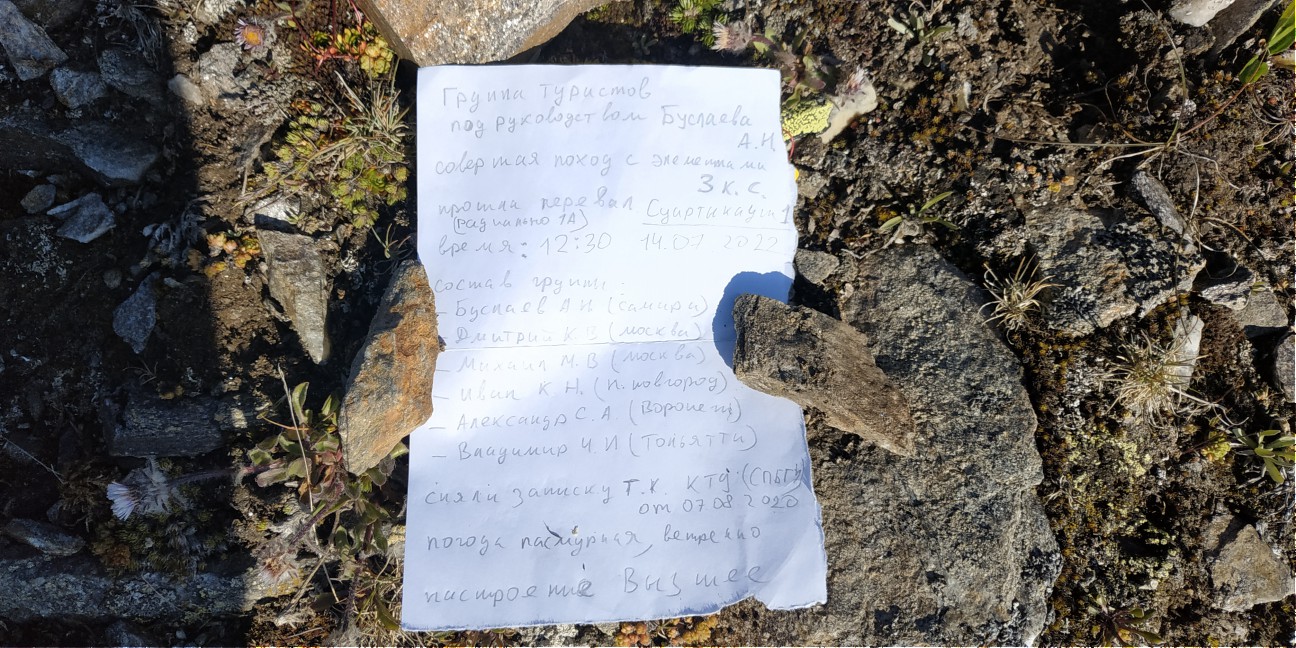 Группа туристов
под руководством Буслаева
А.Н
совершая поход с элементами
3 к.с.
прошла перевал Суартикауш 1
(радиально 1А)
время: 12:30 14.07 2022
состав группы:
- Буслаев А Н (самара)
- Дмитрий К В (москва)
- Михаил М. В (москва)
- Иван К Н. (н. новгород)
- Александр С. А. (Воронеж)
- Владимир Ч. И (Тольятти)
сняли записку т.к. КТФ (СПБГУ)
от 07 08 2020
погода пасмурная, ветренно
настроение Высшее